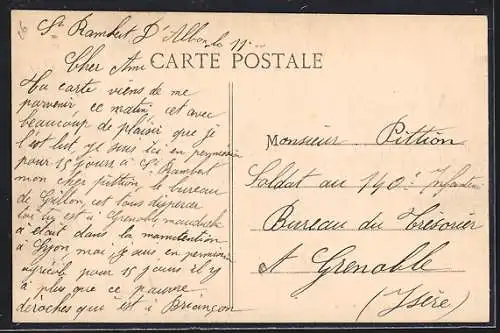 St Rambert D'Albon le 11
CARTE POSTALE
Cher Ami
Ta carte viens de me
parvenir ce matin, cet avec
beaucoup de plaisir que je
l'est lut, je suis ici en permission
pour 15 jours à St Rambert
mon cher pittion le bureau
de Grillon, est tous disperser
est à Grenoble
a étoit dans la manutention
à Lyon moi je suis en permission
agricole pour 15 jours il y
à plus que ce pauvre
deroches qui est à Briançon
Monsieur Pittion
Soldat au 140e Infanterie
Bureau du Trésorier
A Grenoble
(Isère)